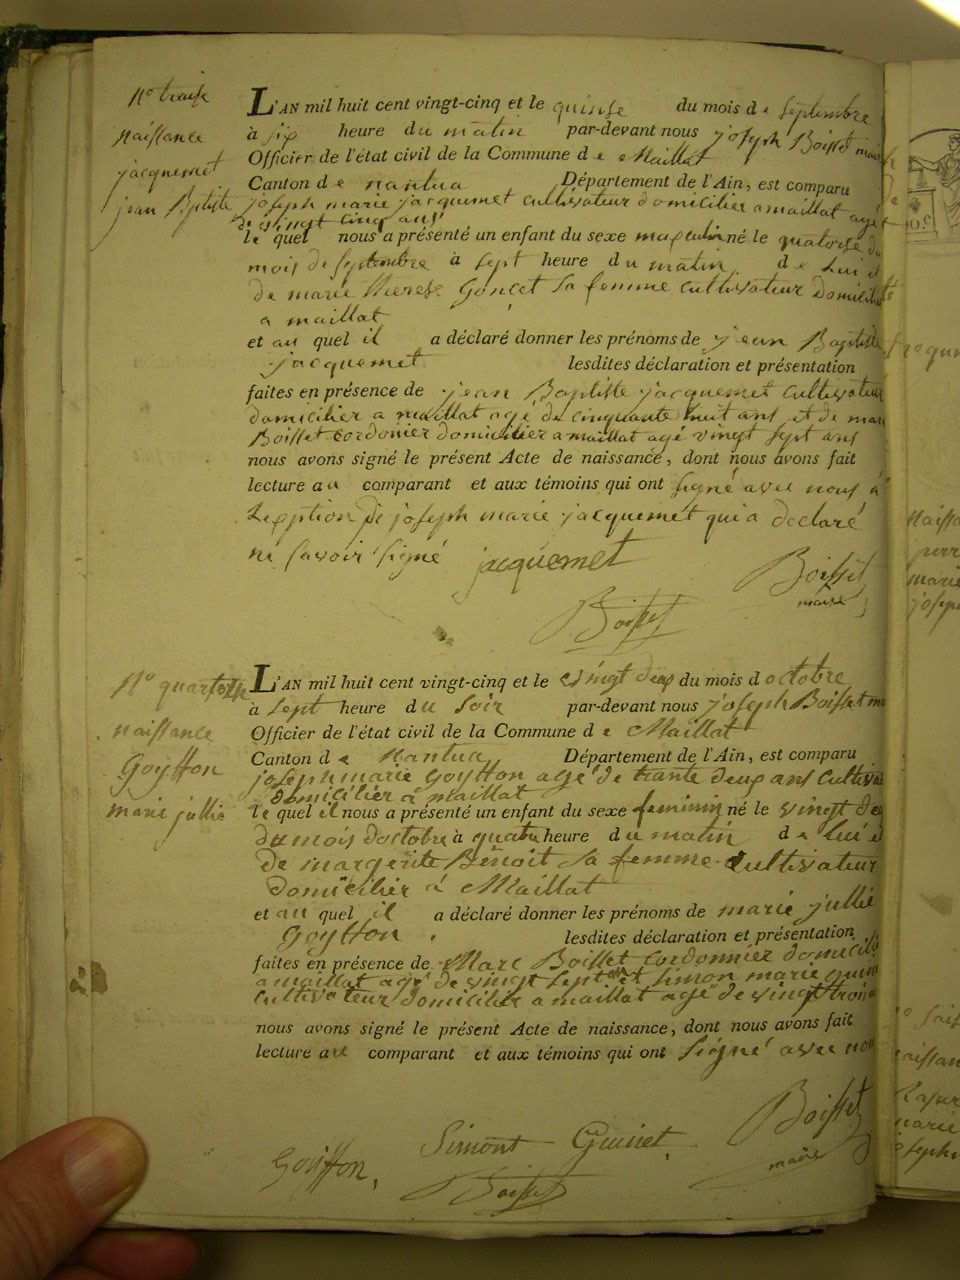 No treize
naissance
jacquemet
jean Baptiste
L'AN mil huit cent vingt-cinq et le quinse du mois de septembre
à six heure du matin par-devant nous joseph Boisset maire
Officier de l'état civil de la Commune de Maillat
Canton de nantua Département de l'Ain, est comparu
joseph marie jacquemet cultivateur domicilier a maillat agé
de vingt cinq ans
le quel nous a présenté un enfant du sexe masculin né le quatorse du
mois de septembre à sept heure du matin de lui et
de marie therese Goncet sa femme cultivateur domicilié
a maillat
et au quel il a déclaré donner les prénoms de jean Baptiste
jacquemet lesdites déclaration et présentation
faites en présence de jean Baptiste jacquemet cultivateur
domicilier a maillat agé de cinquante huit ans et de marc
Boisset cordonier domicilier a maillat agé vingt sept ans
nous avons signé le présent Acte de naissance, dont nous avons fait
lecture au comparant et aux témoins qui ont signé avec nous à
lexeption de joseph marie jacquemet qui a declaré
ne savoir signé
jacquemet
Boisset
maire
Boisset
No quartorse
naissance
Goyffon
marie jullie
L'AN mil huit cent vingt-cinq et le vingt deux du mois d octobre
à sept heure du soir par-devant nous joseph Boisset
Officier de l'état civil de la Commune de Maillat
Canton de Nantua Département de l'Ain, est comparu
joseph marie Goyffon agé de trante deux ans cultivateur
domicilier à maillat
le quel il nous a présenté un enfant du sexe feminin né le vingt deux
du mois doctobre à quatre heure du matin de lui et
de margerite Benoit sa femme cultivateur
domicilier à Maillat
et au quel il a déclaré donner les prénoms de marie jullie
Goyffon . lesdites déclaration et présentation
faites en présence de Marc Boisset cordonnier domicilié
a maillat agé de vingt sept ans et simon marie
cultivateur domicilier a maillat agé de vingt trois
nous avons signé le présent Acte de naissance, dont nous avons fait
lecture au comparant et aux témoins qui ont signé avec nous
Boisset
maire
Simont Guinet
Goiffon
Boisset
naissan
marie
joseph